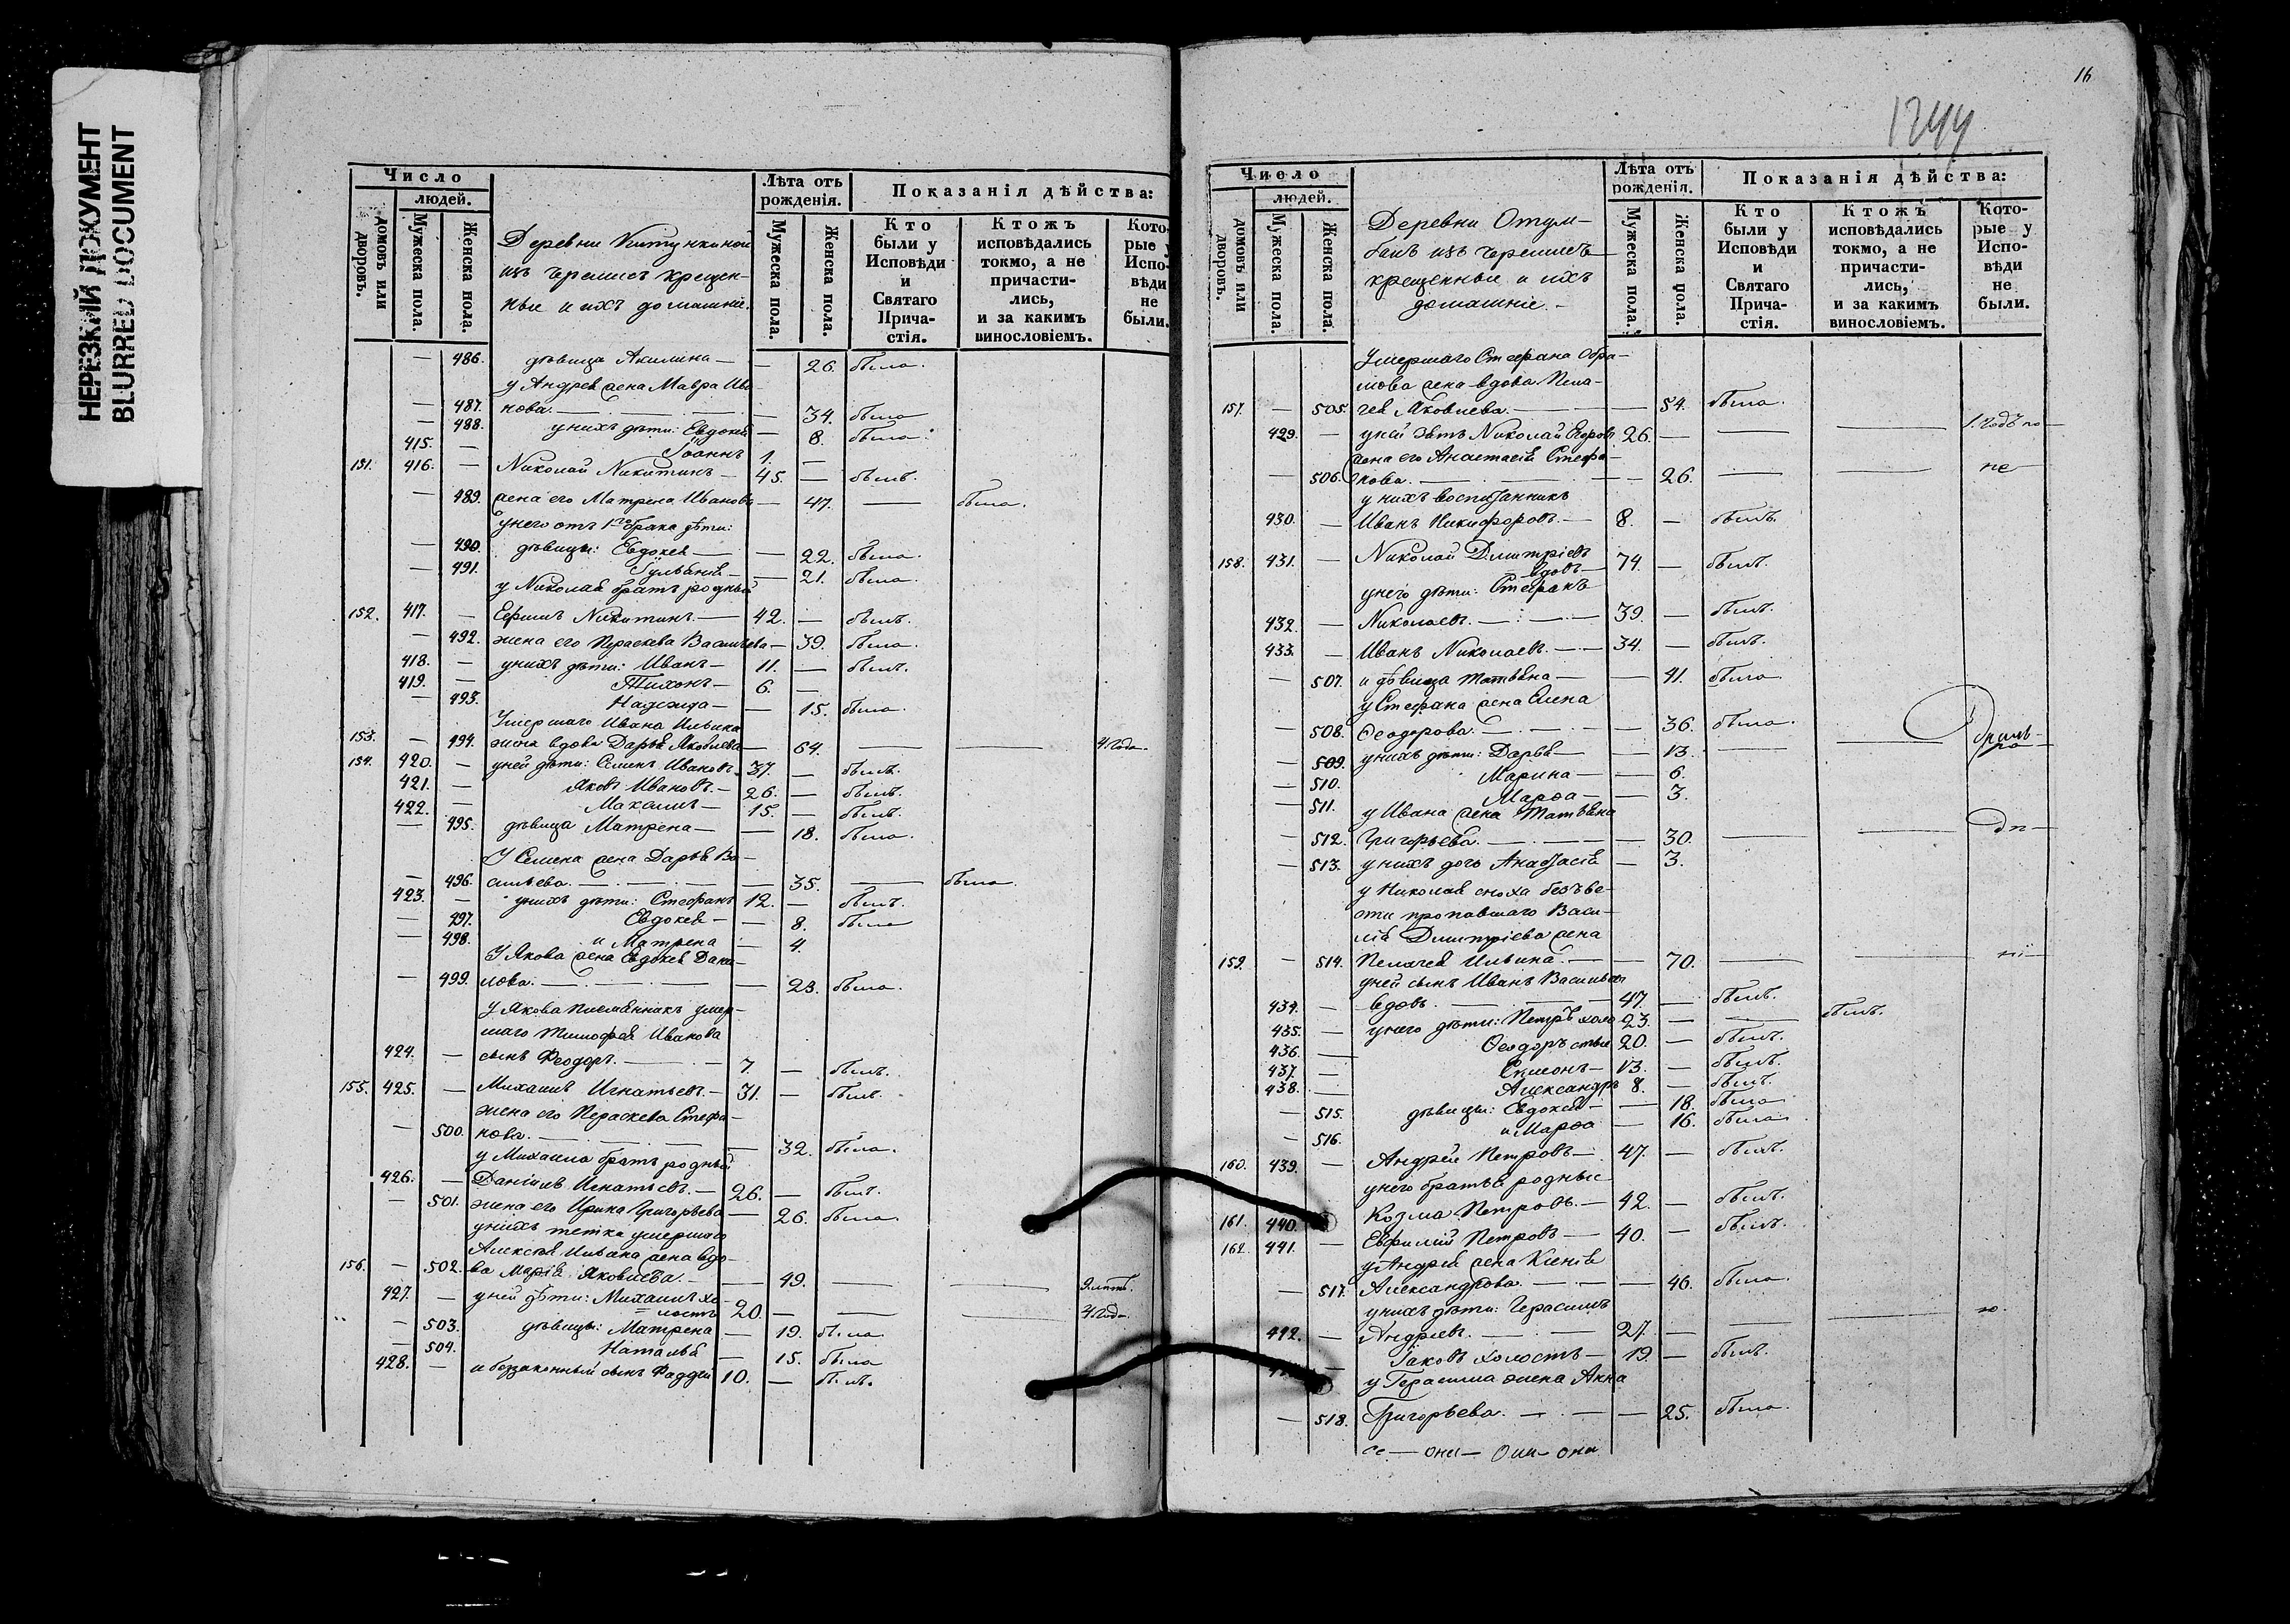 НЕРЕЗКИЙ ДОКУМЕНТ
BLURRED DOCUMENT
Число
людей.
домовъ или дворовъ.
Мужеска пола.
Женска пола.
Деревни
изъ черемисъ крещен-
ные и ихъ домашніе.
Лѣта отъ рожденія.
Мужеска пола.
Женска пола.
Показанія дѣйства:
Кто были у Исповѣди и Святаго Прича-стія.
Ктожъ исповѣдались токмо, а не причасти-лись, и за какимъ винословіемъ.
Кото-рые у Испо-вѣди не были.
— 486. дѣвица Акилина — — 26. была.
у Андрея жена Мавра Ива-
— 487. нова. — — 34. была
— 488. у нихъ дѣти: Евдокія — 8. была.
415. — Іоаннъ 1. —
151. 416. — Николай Никитинъ — 45. — былъ.
— 489. жена его Матрена Иванова — 47. — была.
у него отъ 1го брака дѣти:
— 490. дѣвицы: Евдокія — — 22. была.
— 491. — 21. была.
у Николая братъ родный
152. 417. — Ефимъ Никитинъ. — 42. — былъ.
— 492. жена его Параскева Васильева — 39. была.
418. — у нихъ дѣти: Иванъ — 11. — былъ.
419. — Тихонъ — 6. —
— 493. Надежда — — 15. была.
Умершаго Ивана Ильина
153. — 494. жена вдова Дарья Яковлева — 64. — — 4 года.
154. 420. — у ней дѣти: Семенъ Ивановъ. 37. — былъ.
421. — Яковъ Ивановъ. — 26. — былъ.
422. — Михаилъ — 15. — былъ.
— 495. дѣвица Матрена — — 18. была.
У Семена жена Дарья Ва-
— 496. сильева. — — 35. — была.
423. — у нихъ дѣти: Стефанъ 12. — былъ.
— 497. Евдокія — — 8. была
— 498. и Матрена — 4.
У Якова жена Евдокія Дани-
— 499. лова. — — 23. была.
У Якова племянникъ умер-
шаго Тимофея Иванова
424. — сынъ Феодоръ. — 7. — былъ.
155. 425. — Михаилъ Игнатьевъ. — 31. — былъ.
жена его Параскева Стефа-
— 500. нова. — — 32. была.
у Михаила братъ родный
426. — Даніилъ Игнатьевъ. — 26. — былъ.
— 501. жена его Ирина Григорьева — 26. была.
у нихъ тетка умершаго
Алексѣя Ильина жена вдо-
156. — 502. ва Марія Яковлева. — — 49. — — 2 лѣтъ.
427. — у ней дѣти: Михаилъ хо-
лостъ 20. — — — 4 год.
— 503. дѣвицы: Матрена — 19. была
— 504. Наталья — 15. была
428. — и беззаконный сынъ Фаддей 10. — былъ.
16
1244
Число
людей.
домовъ или дворовъ.
Мужеска пола.
Женска пола.
Деревни Отум-
балъ изъ черемисъ
крещенные и ихъ
домашніе. —
Лѣта отъ рожденія.
Мужеска пола.
Женска пола.
Показанія дѣйства:
Кто были у Исповѣди и Святаго Прича-стія.
Ктожъ исповѣдались токмо, а не причасти-лись, и за какимъ винословіемъ.
Кото-рые у Испо-вѣди не были.
Умершаго Стефана Обра-
мова жена вдова Пела-
157. — 505. гея Яковлева. — — 54. была.
429. — у ней зять Николай Егоровъ 26. — — — 1. годъ по —
жена его Анастасія Стефа-
— 506. нова. — — 26. — — не —
у нихъ воспитанникъ
430. — Иванъ Никифоровъ. — 8. — былъ.
158. 431. — Николай Димитріевъ
вдовъ — 74. — былъ.
у него дѣти: Стефанъ
432. — Николаевъ. — 39. — былъ.
433. — Иванъ Николаевъ. — 34. — былъ.
— 507. и дѣвица Матвѣна — — 41. была
у Стефана жена Елена
— 508. Ѳеодорова. — — 36. была.
— 509. у нихъ дѣти: Дарья — — 13. — —
— 510. Марина — — 6.
— 511. Марѳа — — 3.
у Ивана жена Матвѣна
— 512. Григорьева. — — 30. — —
— 513. у нихъ дочь Анастасія — 3.
у Николая сноха безъ ве-
сти пропавшаго Васи-
лія Димитріева жена
159. — 514. Пелагея Ильина. — — 70. — —
у ней сынъ Иванъ Васильевъ
434. — вдовъ. — 47. — былъ.
435. — у него дѣти: Петръ холо 23. — — былъ.
436. — Ѳеодоръ стые 20. — былъ.
437. — Симонъ — 13. — былъ.
438. — Александръ 8. — былъ.
— 515. дѣвицы: Евдокія — — 18. была
— 516. и Марѳа — 16. была
160. 439. — Андрей Петровъ — 47. — былъ.
у него братья родные
161. 440. Козма Петровъ. — 42. — былъ.
162. 441. — Евфимій Петровъ — 40. — былъ.
у Андрея жена Ксенія
— 517. Александрова. — — 46. была.
у нихъ дѣти: Герасимъ
442. — Андреевъ. — 27. — — —
— Іаковъ холостъ — 19. — былъ.
у Герасима жена Анна
— 518. Григорьева. — — 25. была.